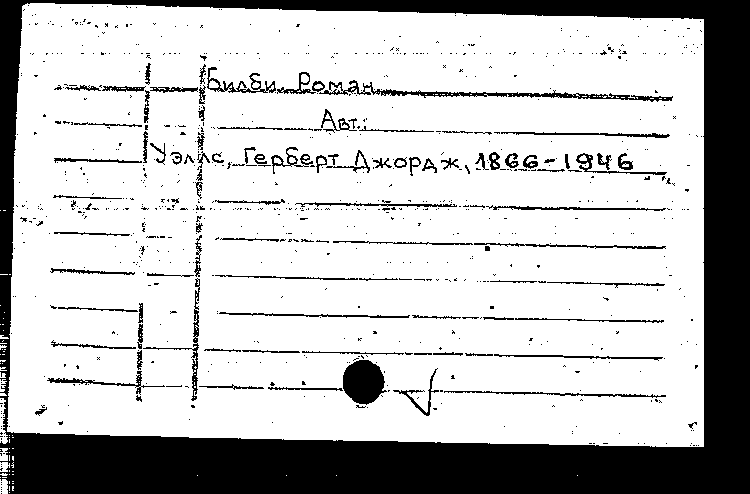 Билби. Роман.
Авт.:
Уэллс, Герберт Джордж, 1866-1946